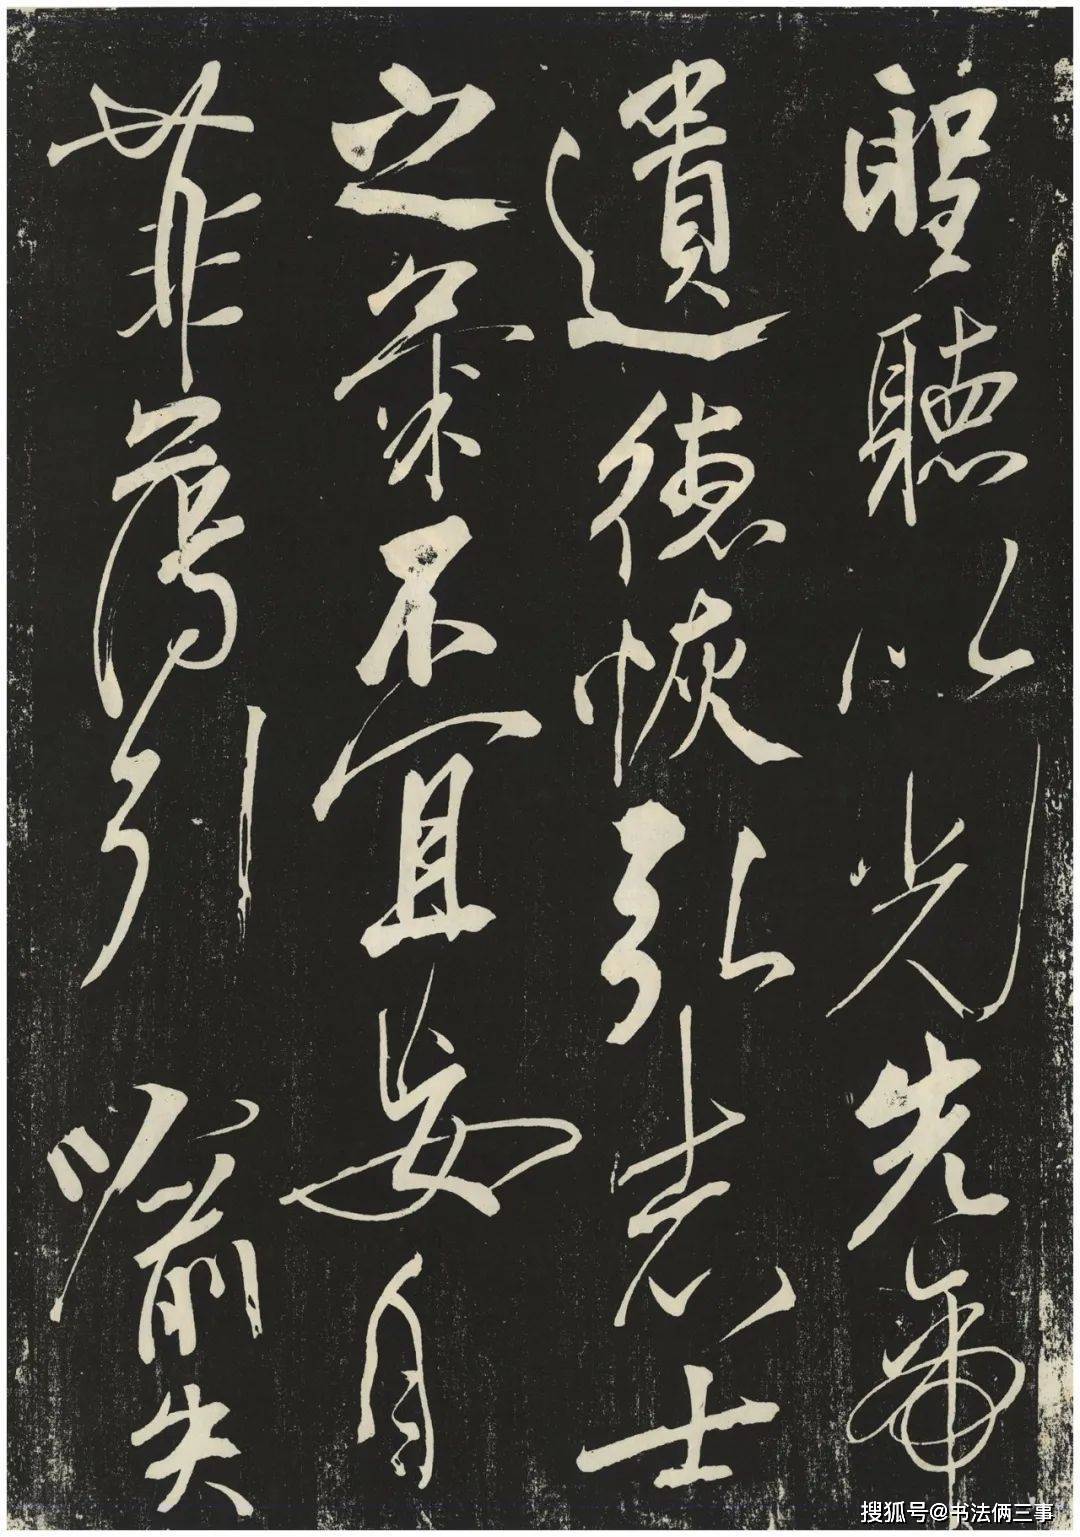 聖聽以光先帝
遺德恢弘志士
之氣不宜妄自
菲薄引喻失
搜狐号@书法俩三事